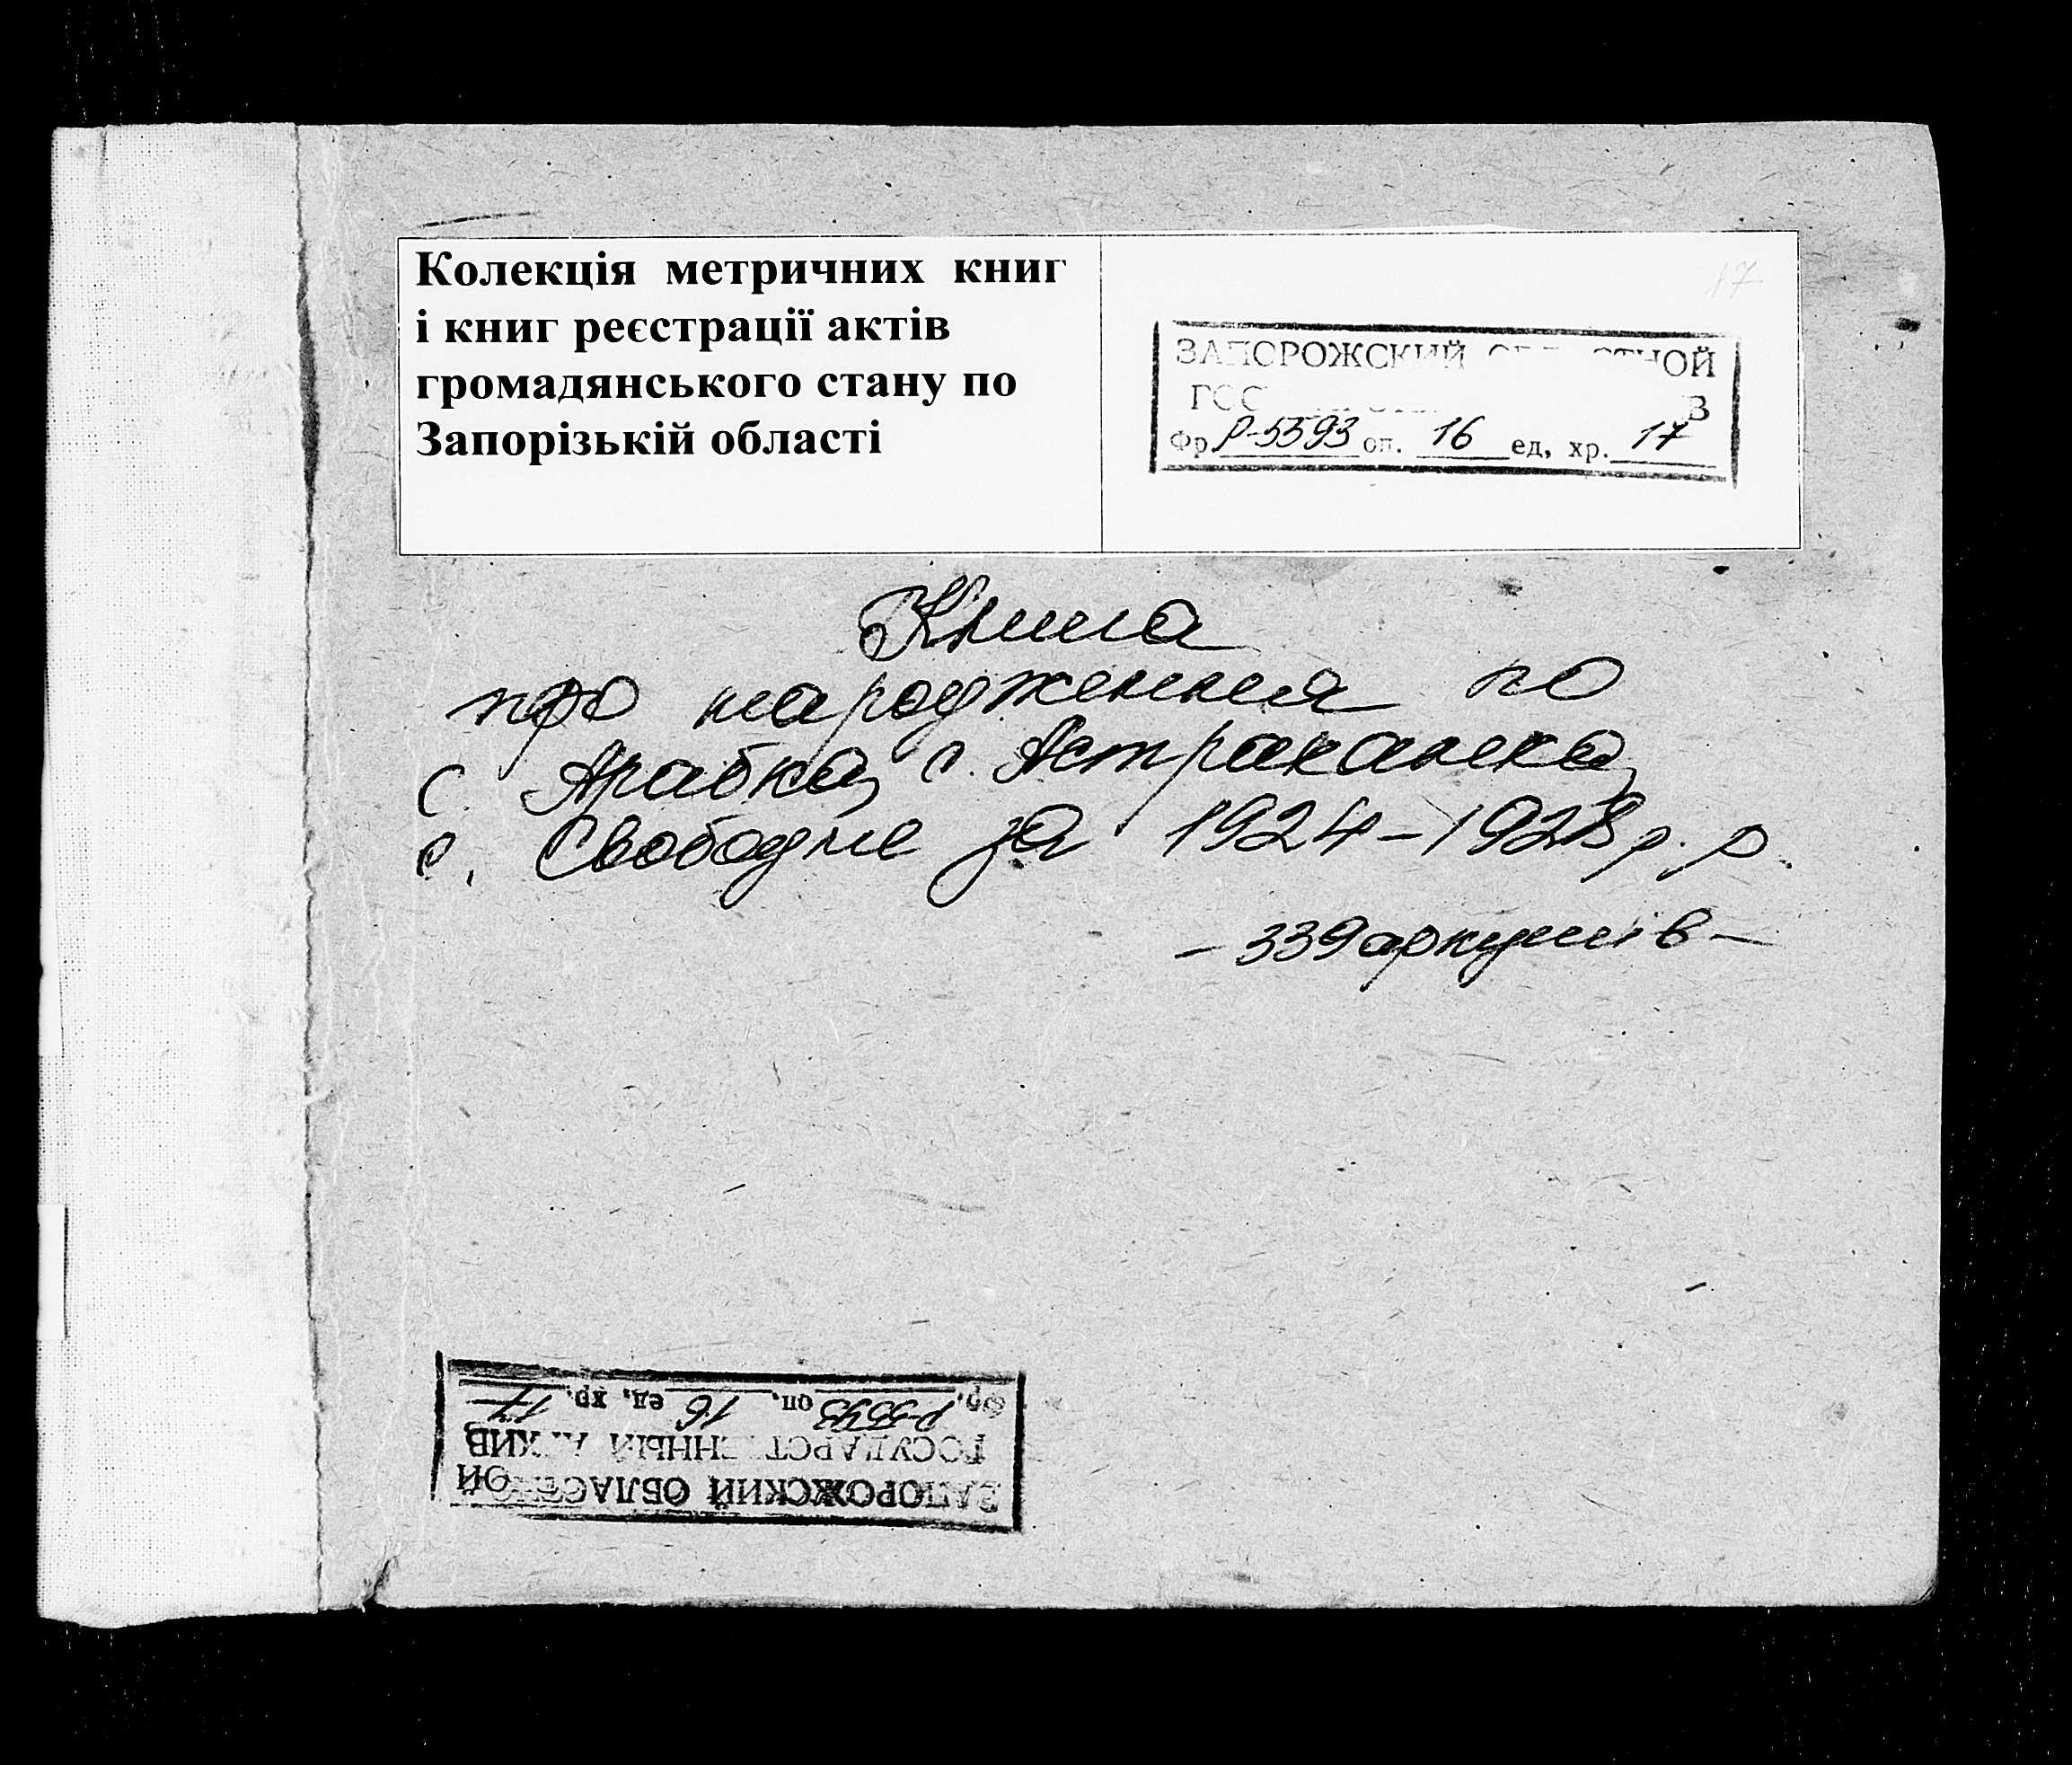 Колекція метричних книг
і книг реєстрації актів
громадянського стану по
Запорізькій області
17
ЗАПОРОЖСКИЙ
Фр Р-5593 оп. 16 ед, хр. 17
Книга
про народження по
с. Арабка, с. Астраханка,
с. Свободне за 1924-1928 р.р.
- 339 аркушів -
ЗАПОРОЖСКИЙ ОБЛАСТНОЙ
ГОСУДАРСТВЕННЫЙ АРХИВ
Фр. Р-5593 оп. 16 ед, хр. 17